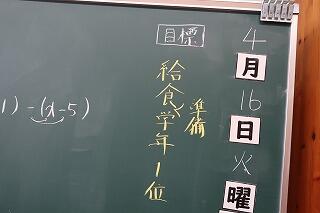 4
月
16
日
火
曜
目標
給食準備
学年1位
1) -(x-5)